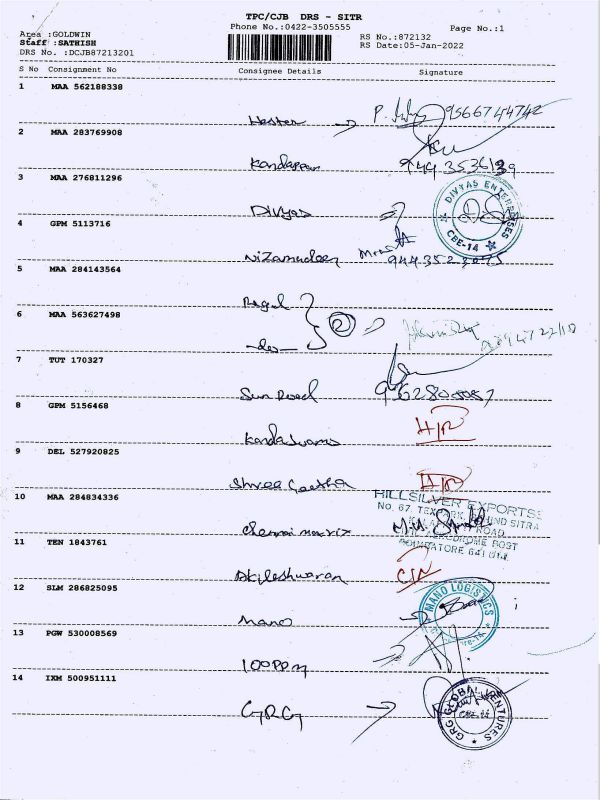 TPC/CJB DRS - SITR
Phone No.:0422-3505555
Page No.:1
Area :GOLDWIN
Staff :SATHISH
DRS No. :DCJB87213201
RS No.:872132
RS Date:05-Jan-2022
S No Consignment No Consignee Details Signature
1 MAA 562188338
9566744742
2 MAA 283769908
Kandappan
3 MAA 276811296
Divyas
DIVYAS ENTERPRISES
CBE-14
4 GPM 5113716
Nizamudeen
5 MAA 284143564
Ragul
6 MAA 563627498
2
-do-
7 TUT 170327
Sun Road
8 GPM 5156468
Kandaswamy
9 DEL 527920825
Shree Geetha
10 MAA 284834336
HILLSILVER EXPORTS
Chennai
11 TEN 1843761
Akileshwaran
12 SLM 286825095
Mano
MANO LOGISTICS
13 PGW 530008569
100PPM
14 IXM 500951111
GRG
GRG GLOBAL VENTURES